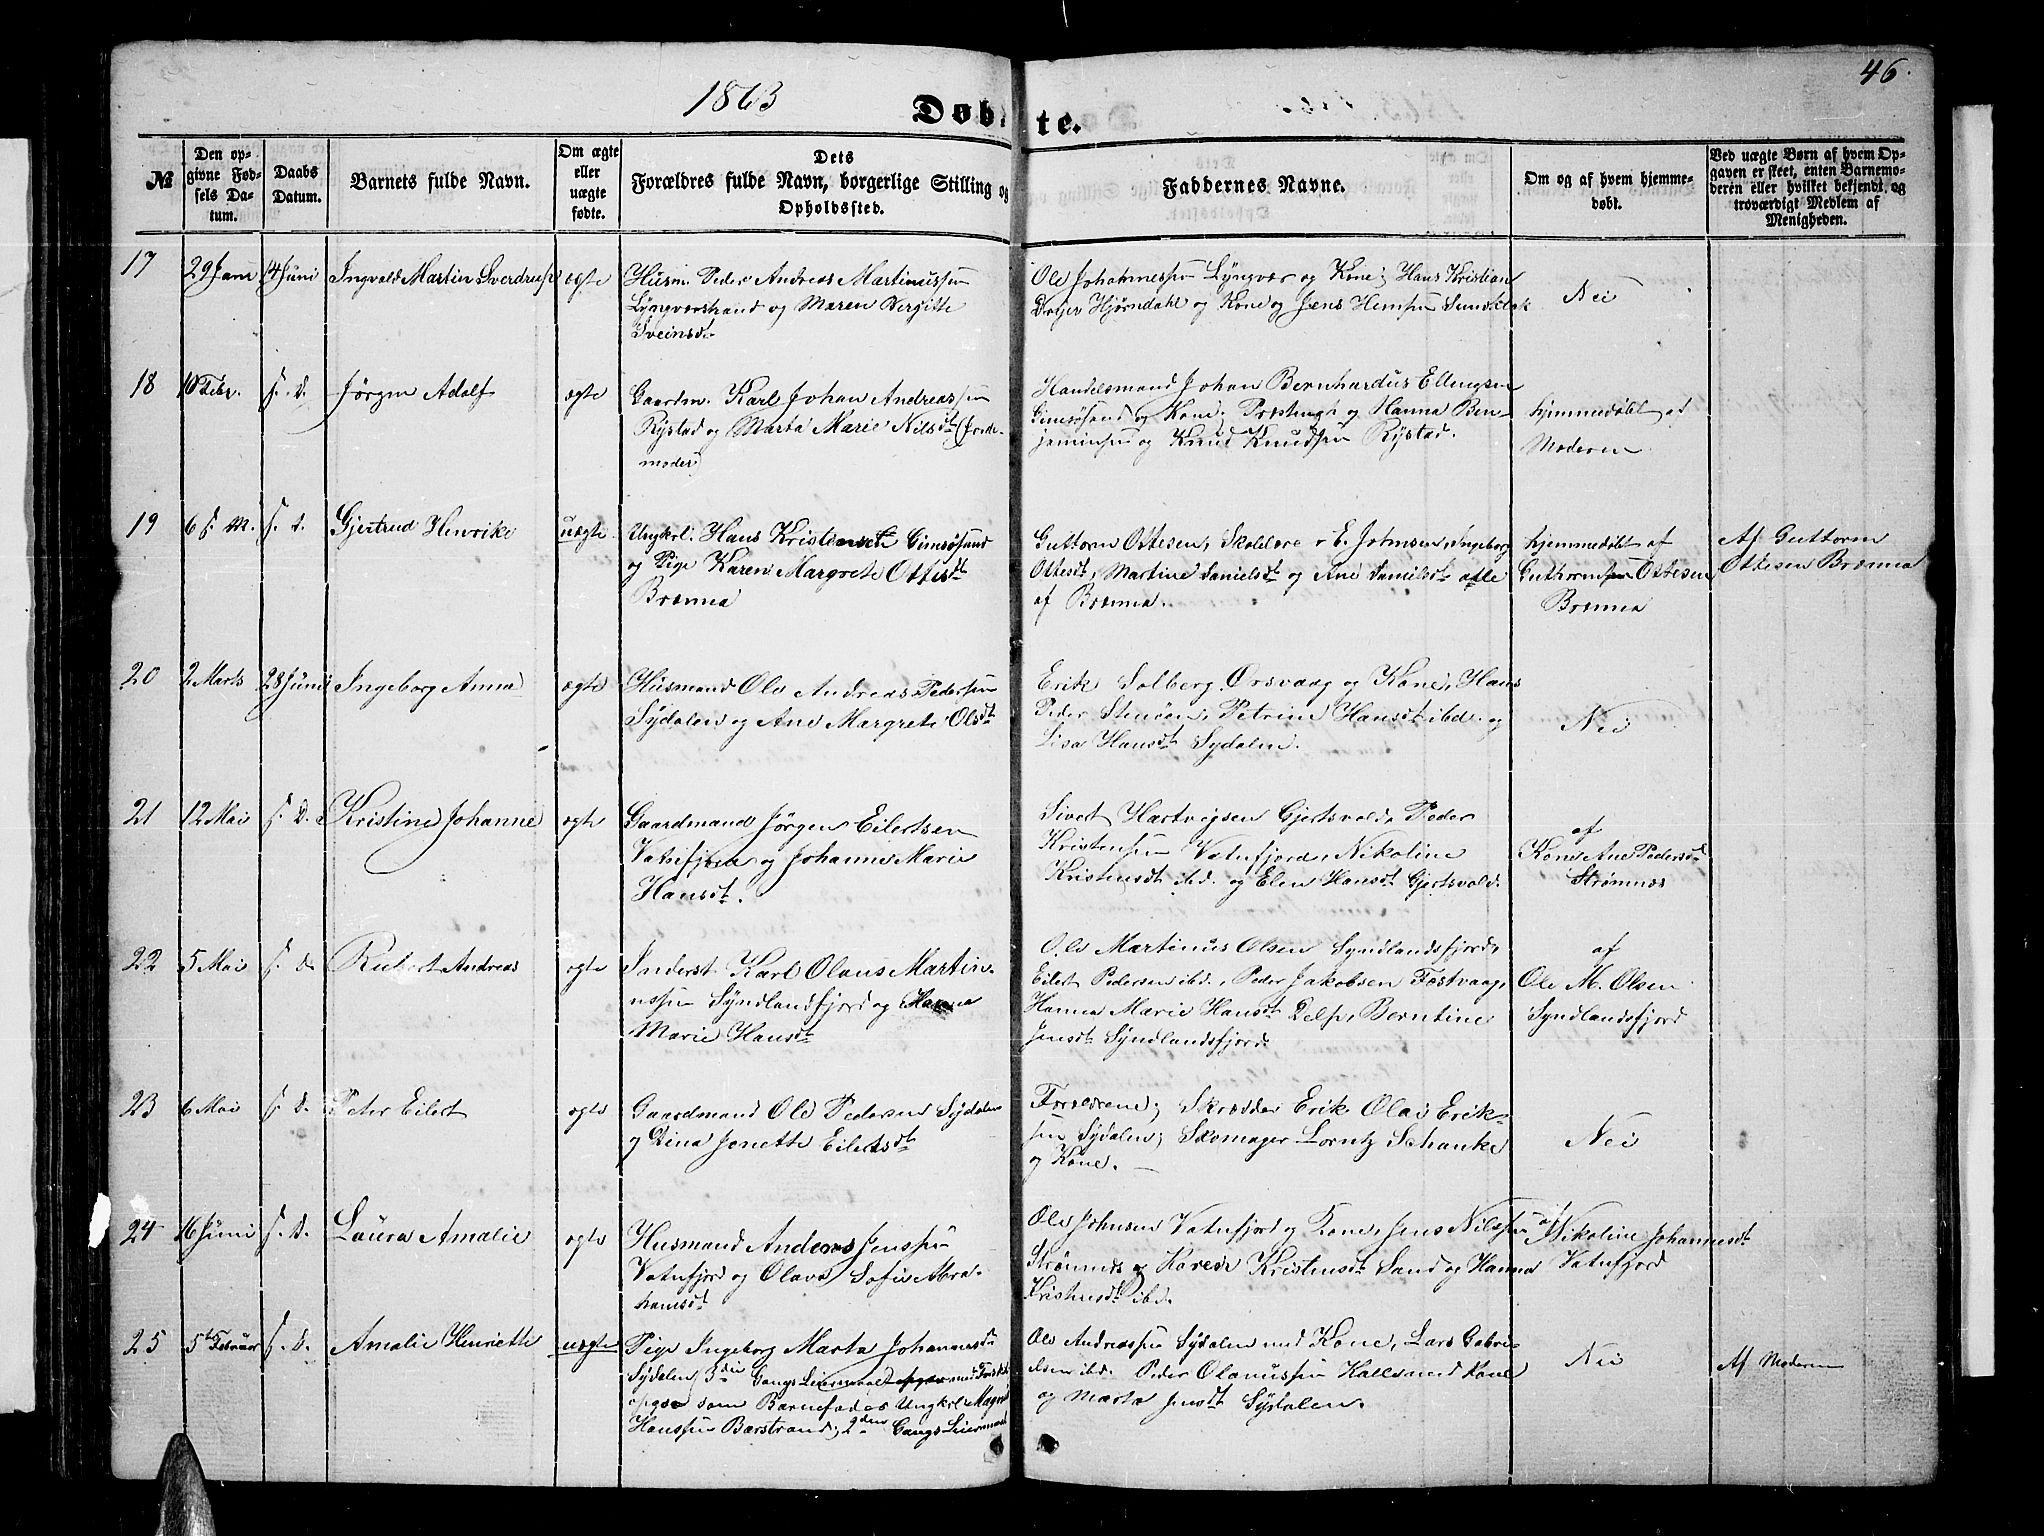 46.
1863
Døbte.
№
Den opgivne Fødsels Datum.
Daabs Datum.
Barnets fulde Navn.
Om ægte eller uægte fødte.
Dets Forældres fulde Navn, borgerlige Stilling og Opholdssted.
Faddernes Navne.
Om og af hvem hjemmedøbt.
Ved uægte Børn af hvem Opgaven er skeet, enten Barnemoderen eller hvilket bekjendt og troværdigt Medlem af Menigheden.
17 29 Janr 14 Juni Ingvald Martin Sverdrup ægte
Husm. Peder Andreas Martinussen
Lyngværstrand og Maren Bergitte
Sveinsdt
Ole Johannessen Lyngvær og Kone; Hans Kristian
Dreyer Hjørndahl og Kone og Jens Hemsen Sundklak
Nei
18 10 Febr. s. D. Jörgen Adolf ægte
Gaardm. Karl Johan Andreassen
Rystad og Marta Marie Nilsdt (Jorde-
moder)
Handelsmand Johan Bernhardus Ellingsen
Gimsösund og Kone; og Hanna Ben-
jaminsen og Knud Knudsen Rystad.
hjemmedöbt af
Moderen
19 6 s. M. s. D. Gjertrud Henrike uægte
Ungkrl. Hans Kristensen Gimsösund
og Pige Karen Margrete Ottesdt
Brænna
Guttorm Ottesen, Skolelærer E. Johnsen, Ingeborg
Ottesdt, Martine Danielsdt og Ane Danielsdt alle
af Brænna.
hjemmedöbt af
Guthorm Ottesen
Brænna
Af Guttorm
Ottesen Brænna
20 2 Marts 28 Juni Ingeborg Anna ægte
Husmand Ole Andreas Pedersen
Sydalen og Ane Margrete Olsdt
Erik Solberg Örsvaag og Kone, Hans
Peder Stenöen, Petrine Hansdt ibd. og
Lisa Hansdt Sydalen.
Nei
21 12 Mai s. D. Kristine Johanne ægte
Gaardmand Jörgen Eilertsen
Vatnfjorn og Johanna Marie
Hansdt.
Sivert Hartvigsen Gjertsvold, Peder
Kristensen Vatnfjord, Nikoline
Kristensdt ibd. og Elen Hansdt Gjertsvold.
af
Kone Ane Pedersdt
Strömnæs
22 5 Mai s. D. Rikart Andreas ægte
Inderst Karl Olaus Martin-
ussen Syndlandsfjord og Hanna
Marie Hansdt
Ole Martinus Olsen Syndlandsfjord,
Eilert Pedersen ibd., Peder Jakobsen Festvaag,
Hanna Marie Hansdt Delp, Berntine
Jensdt Syndlandsfjord.
af
Ole M. Olsen
Syndlandsfjord
23 6 Mai s. D. Peter Eilert ægte
Gaardmand Ole Pedersen Sydalen
og Dina Jonette Eilertsdt
Forældrene; Skrædder Erik Olai Erik-
sen Sydalen; Skomager Lorntz Schanke
og Kone.
Nei
24 16 Juni s. D. Laura Amalie ægte
Husmand Anders Jenssen
Vatnfjord og Olava Sofie Abra-
hamsdt
Ole Johnsen Vatnfjord og Kone, Jens Nilssen
Strömnæs og Kristensdt Sand og Hanna
Kristensdt ibd.
af Nikoline Johannesdt
Vatnfjord
25 5t Februar s. D. Amalie Henriette uægte
Pige Ingeborg Marta Johannesdt
Sydalen (3die Gangs Leiermaal
opgav som Barnefader Ungkrl. Magnus
Hanssen Barstrand; 2den Gangs Leiermaal
Ole Andreassen Sydalen med Kone, Lars Gabri-
elsen ibd. Peder Olanussen Kalle med Kone
og Marta Jensdt Sydalen.
Nei
Af Moderen